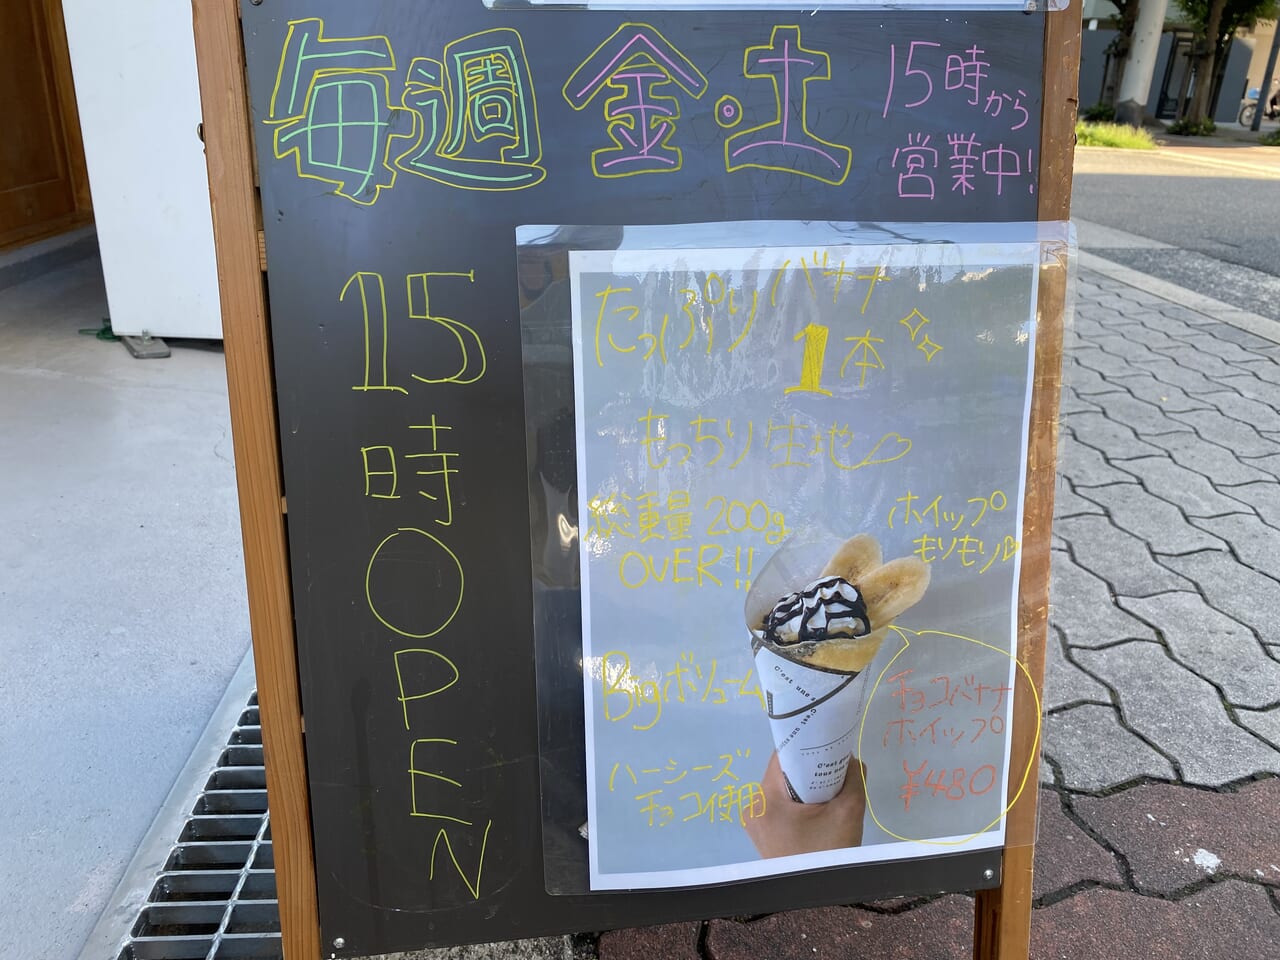 毎週 金・土
15時から
営業中!
15時OPEN
たっぷりバナナ
1本
もっちり生地
総重量 200g
OVER!!
ホイップ
もりもり
Bigボリューム
ハーシーズ
チョコ使用
チョコバナナ
ホイップ
¥480